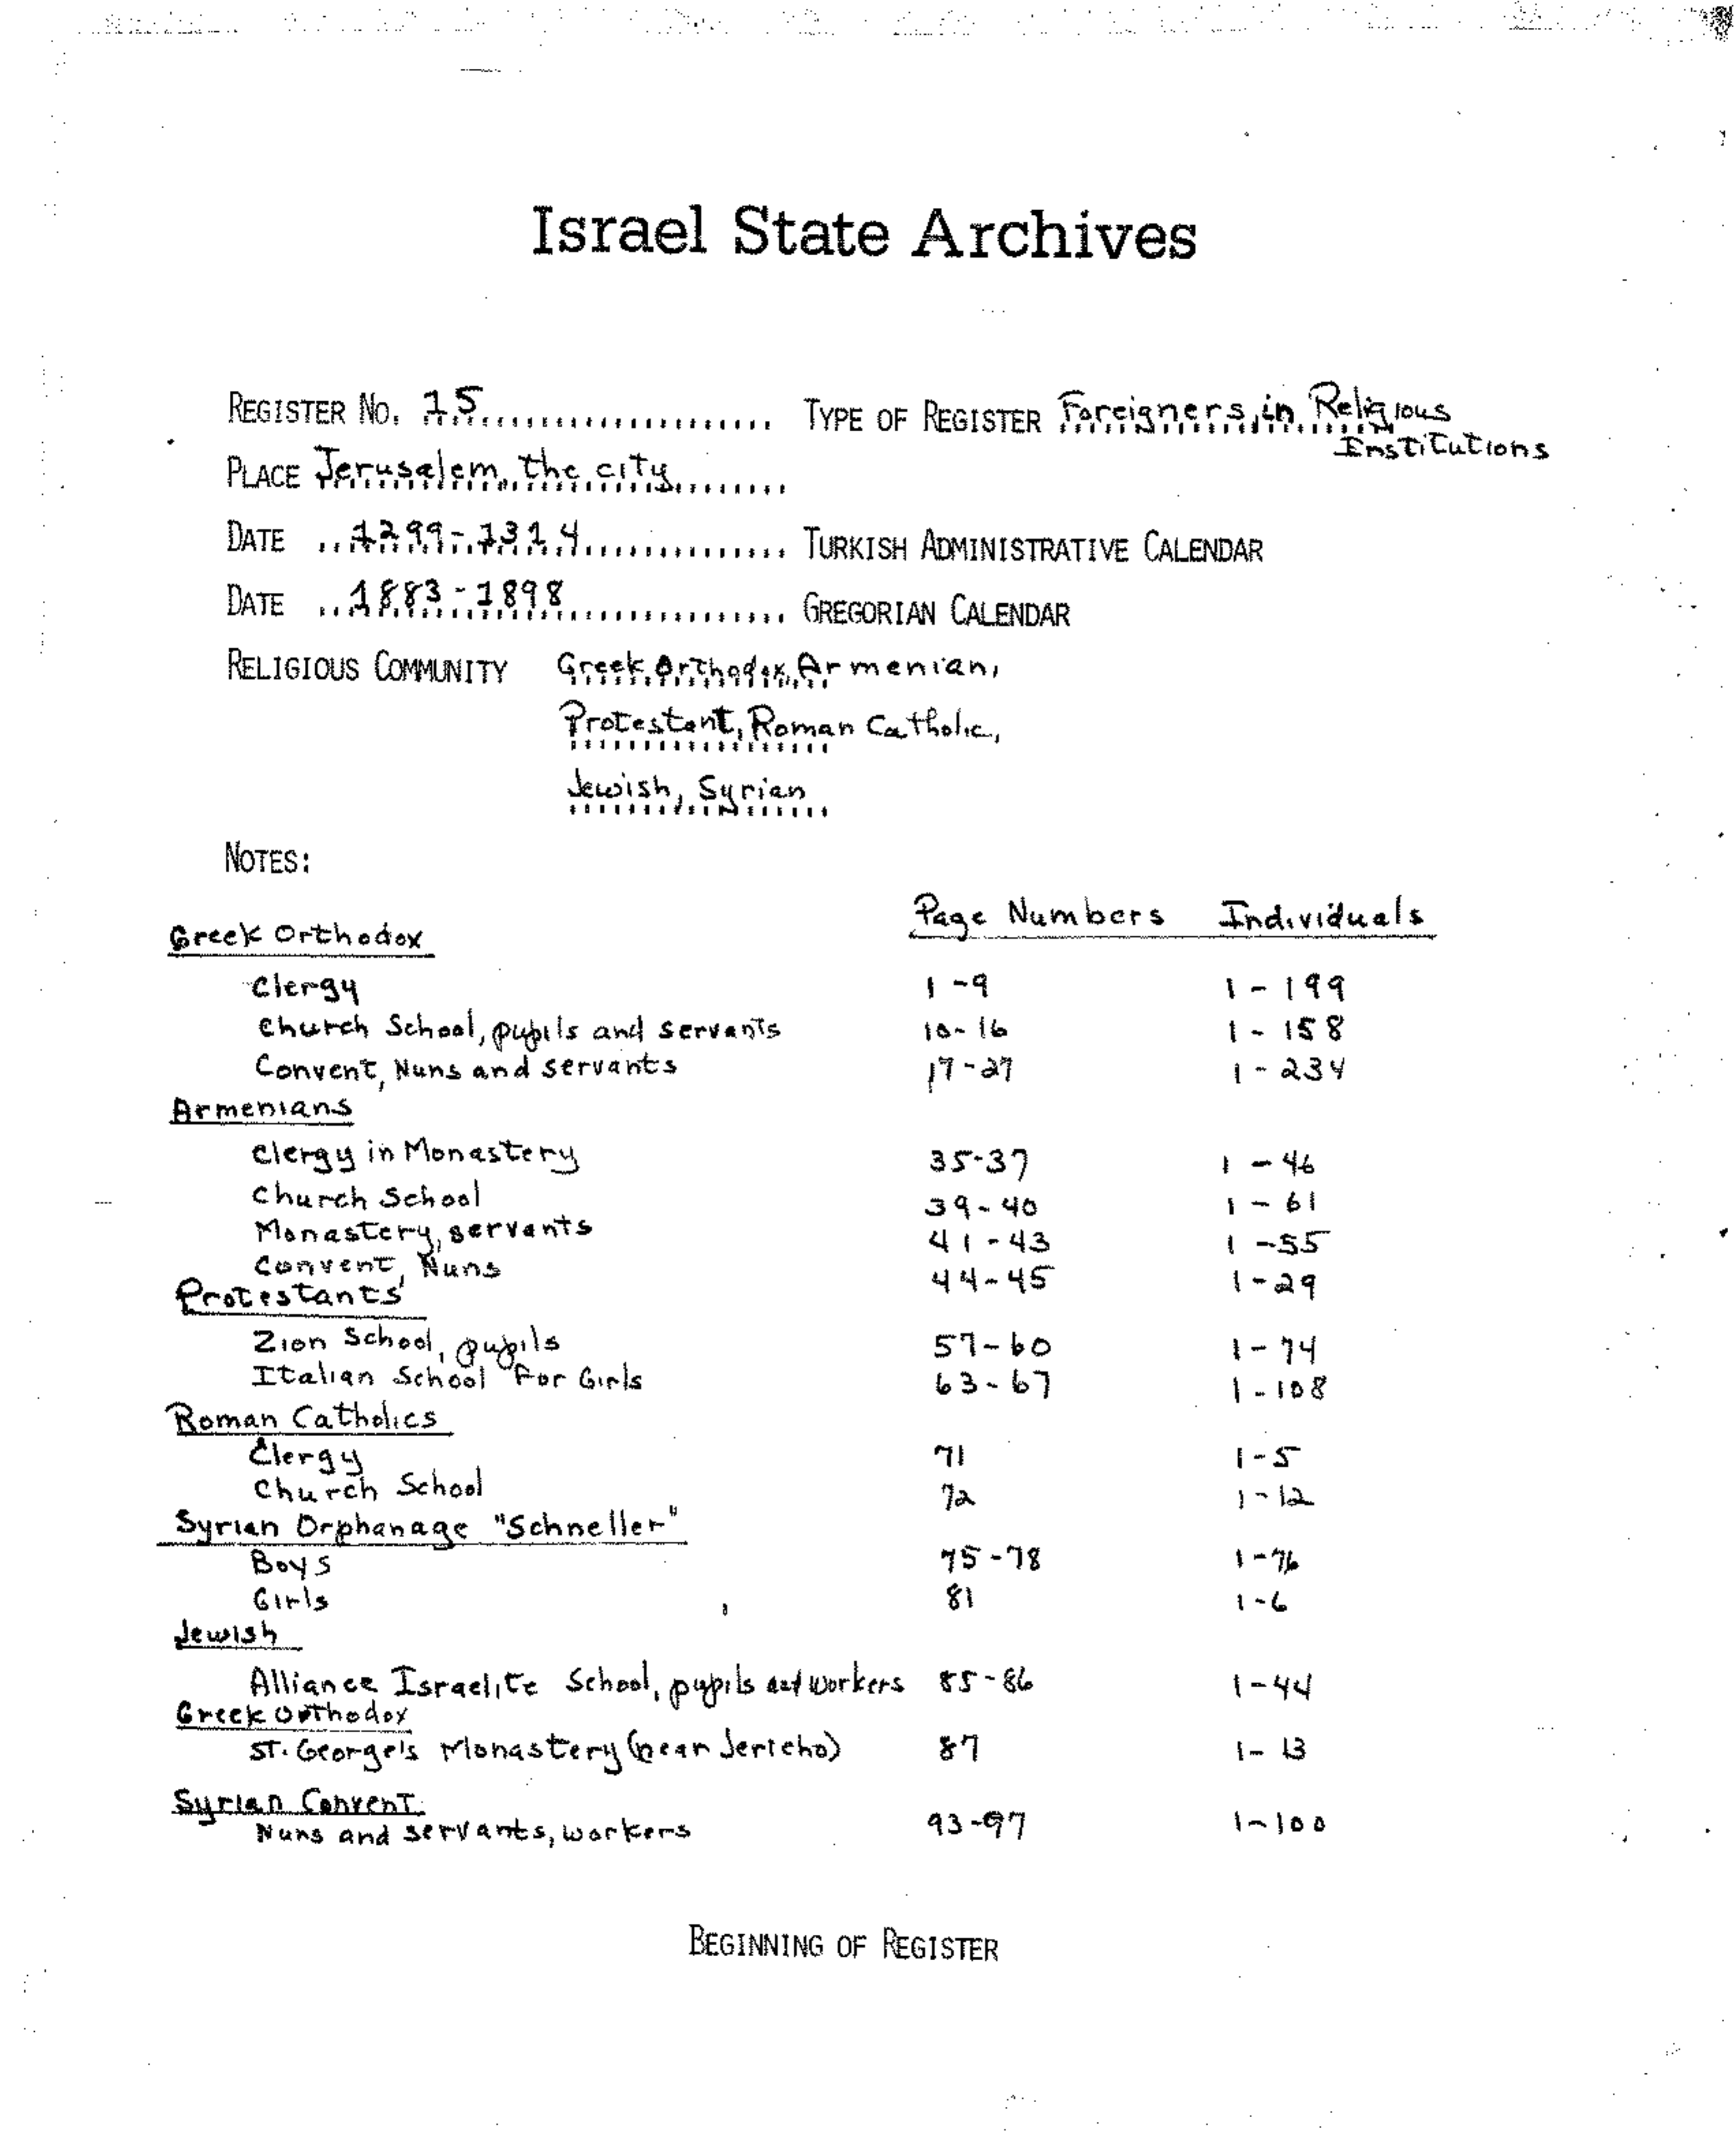 Israel State Archives
REGISTER No. 15 TYPE OF REGISTER Foreigners in Religious
Institutions
PLACE Jerusalem, the city
DATE 1299-1314 TURKISH ADMINISTRATIVE CALENDAR
DATE 1883-1898 GREGORIAN CALENDAR
RELIGIOUS COMMUNITY Greek Orthodox, Armenian,
Protestant, Roman Catholic,
Jewish, Syrian
NOTES:
Page Numbers Individuals
Greek Orthodox
Clergy 1-9 1-199
Church School, pupils and servants 10-16 1-158
Convent, Nuns and servants 17-27 1-234
Armenians
Clergy in Monastery 35-37 1-46
Church School 39-40 1-61
Monastery, servants 41-43 1-55
Convent, Nuns 44-45 1-29
Protestants
Zion School, pupils 57-60 1-74
Italian School for Girls 63-67 1-108
Roman Catholics
Clergy 71 1-5
Church School 72 1-12
Syrian Orphanage "Schneller"
Boys 75-78 1-76
Girls 81 1-6
Jewish
Alliance Israelite School, pupils and workers 85-86 1-44
Greek Orthodox
St. George's Monastery (near Jericho) 87 1-13
Syrian Convent
Nuns and servants, workers 93-97 1-100
BEGINNING OF REGISTER